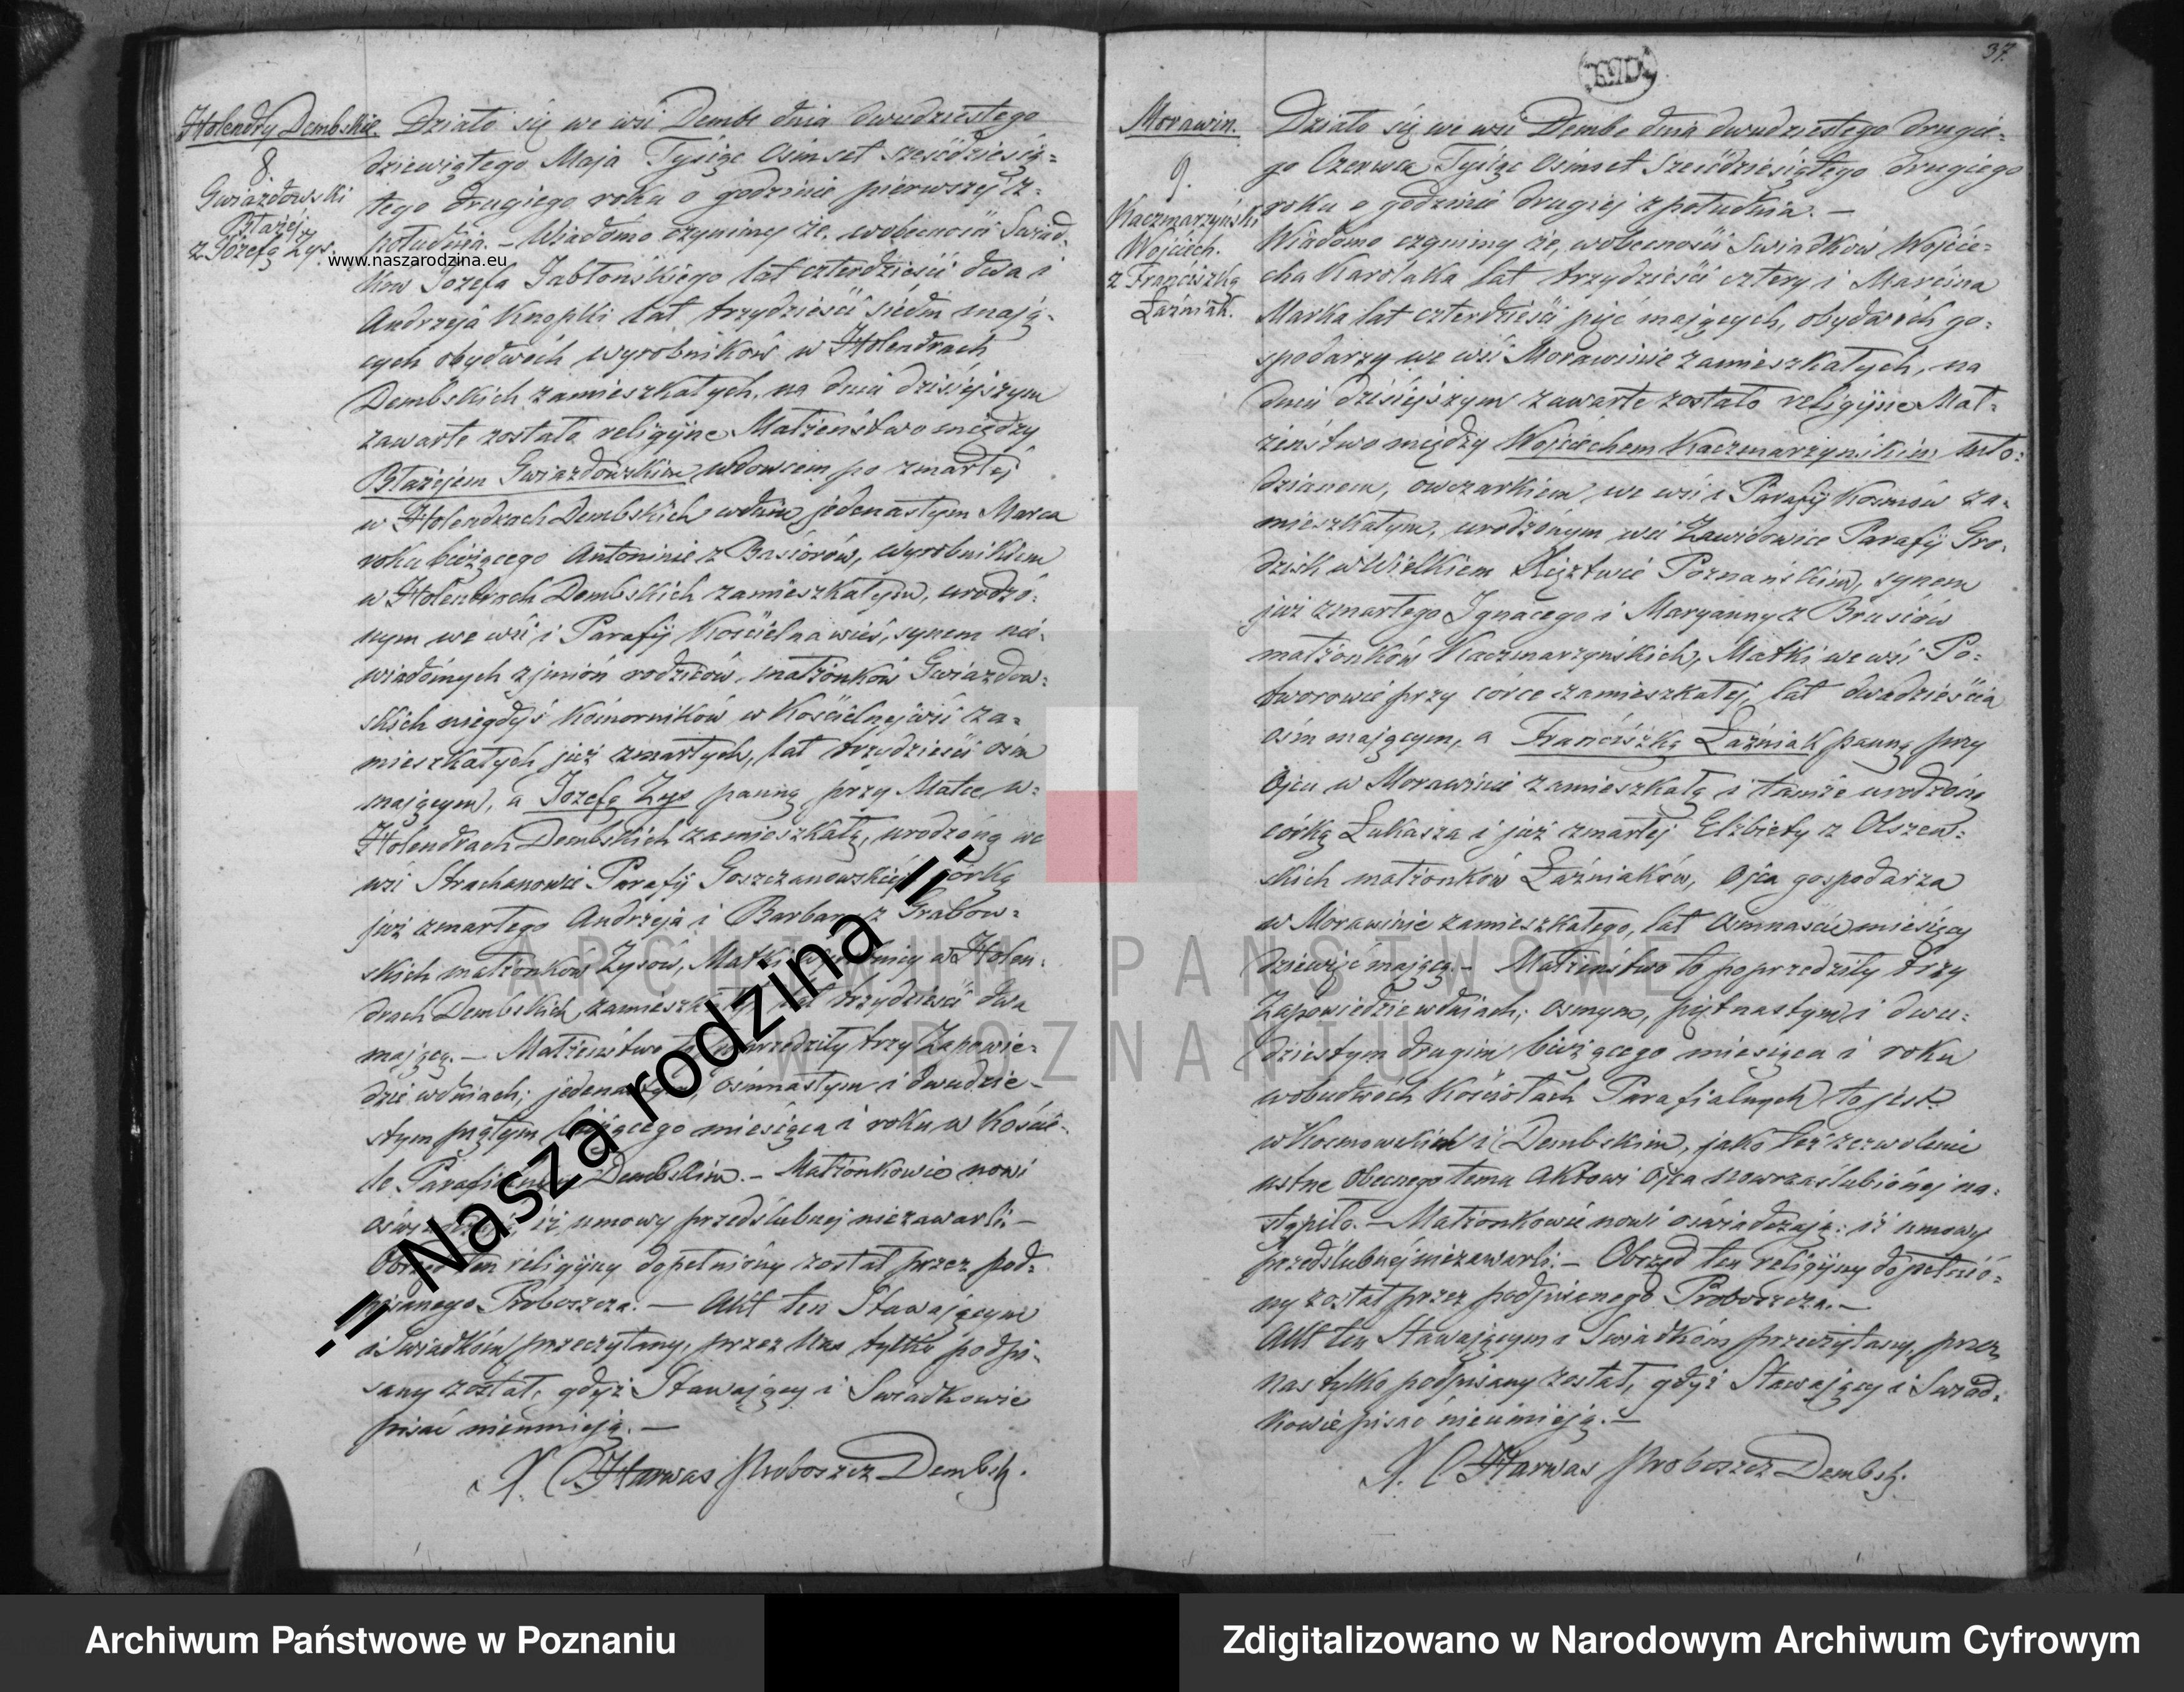 Holendry Dembskie.
8.
Gwiazdowski
Błażéj.
z Józefą Zys.
www.naszarodzina.eu
Działo się we wsi Dembe dnia dwudziestego
dziewiątego Maja Tysiąc Osimset sześćdziesią=
tego drugiego roku o godzinie pierwszej z=
południa. – Wiadomo czynimy że, wobecności Świad=
ków Józefa Jabłońskiego lat czterdzieści dwa i
Andrzeja Knopki lat trzydzieści siedm mają=
cych obydwóch wyrobników w Holendrach
Dembskich zamieszkałych, na dniu dzisiejszym
zawarte zostało religijne Małżeństwo między
Błażejem Gwiazdowskim, wdowcem po zmarłej
w Holendrach Dembskich wdniu jedenastym Marca
roku bieżącego Antoninie z Basiorów, wyrobnikiem
w Holendrach Dembskich zamieszkałym, urodzo=
nym we wsi i Parafij Kościelna wieś, synem nie=
wiadomych z imion rodziców, małżonków Gwiazdow=
skich niegdyś komorników w Kościelnejwsi za=
mieszkałych już zmarłych, lat trzydzieści osim
mającym, a Józefą Zys panną przy Matce w=
Holendrach Dembskich zamieszkałą, urodzoną we
wsi Strachanowie Parafij Goszczanowskiéj, córką
już zmarłego Andrzeja i Barbary z Grabow=
skich małżonków Zysów, Matki wyrobnicy w Holen=
drach Dembskich zamieszkałej, lat trzydzieści dwa
mającą. – Małżeństwo to poprzedziły trzy Zapowie=
dzie wdniach; jedenastym, osimnastym i dwudzie=
stym piątym bieżącego miesiąca i roku w Koście=
le Parafialnym Dembskim. – Małżonkowie nowi
oświadczają: iż umowy przedślubnej niezawarli. –
Obrzęd ten religijny dopełniony został przez pod=
pisanego Proboszcza. – Akt ten Stawającym
i Świadkóm przeczytany, przez Nas tylko podpi=
sany został, gdyż Stawający i Świadkowie
pisać nieumieją. –
X. C. Harwas Proboszcz Dembsk.
-=Nasza rodzina=-
37.
Morawin.
9.
Kaczmarzyński
Wojciech.
z Franciszką
Łaźniak.
Działo się we wsi Dembe dnia dwudziestego drugie=
go Czerwca Tysiąc Osimset Sześćdziesiątego drugiego
roku o godzinie drugiej z południa. –
Wiadomo czynimy że, wobecności Świadków Wojcie=
cha Karolaka lat trzydzieści cztery i Marcina
Marka lat czterdzieści pięć mających, obydwóch go=
spodarzy we wsi Morawinie zamieszkałych, na
dniu dzisiejszym zawarte zostało religijne Mał=
żeństwo między Wojciechem Kaczmarzyńskim mło=
dzianem, owczarkiem we wsi i Parafij Kosmów za=
mieszkałym, urodzonym wsi Zawidowice Parafij Gro=
dzisk w Wielkiem Księztwie Poznańskim, synem
już zmarłego Ignacego i Maryanny z Brusiów
małżonków Kaczmarzyńskich, Matki we wsi Po=
tworowie przy córce zamieszkałej, lat dwadzieścia
osim mającym, a Franciszką Łaźniak panną przy
Ojcu w Morawinie zamieszkałą i tamże urodzoną
córką Łukasza i już zmarłej Elżbiety z Olszew=
skich małżonków Łaźniaków, Ojca gospodarza
w Morawinie zamieszkałego, lat Osimnaście miesięcy
dziewięć mającą. – Małżeństwo to poprzedziły trzy
Zapowiedzie wdniach; osmym, piętnastym i dwu=
dziestym drugim bieżącego miesiąca i roku
wobudwóch Kościołach Parafialnych to jest
w Kosmowskim i Dembskim, jako też zezwolenie
ustne obecnego temu Aktowi Ojca nowozaślubionej na=
stąpiło. – Małżonkowie nowi oświadczają: iż umowy
przedślubnej niezawarli. – Obrzęd ten religijny dopełnio=
ny został przez podpisanego Proboszcza. –
Akt ten Stawającym i Świadkóm przeczytany, przez
nas tylko podpisany został, gdyż Stawający i Świad=
kowie pisać nieumieją. –
X. C. Harwas Proboszcz Dembsk.
ARCHIWUM PAŃSTWOWE
W POZNANIU
Archiwum Państwowe w Poznaniu
Zdigitalizowano w Narodowym Archiwum Cyfrowym